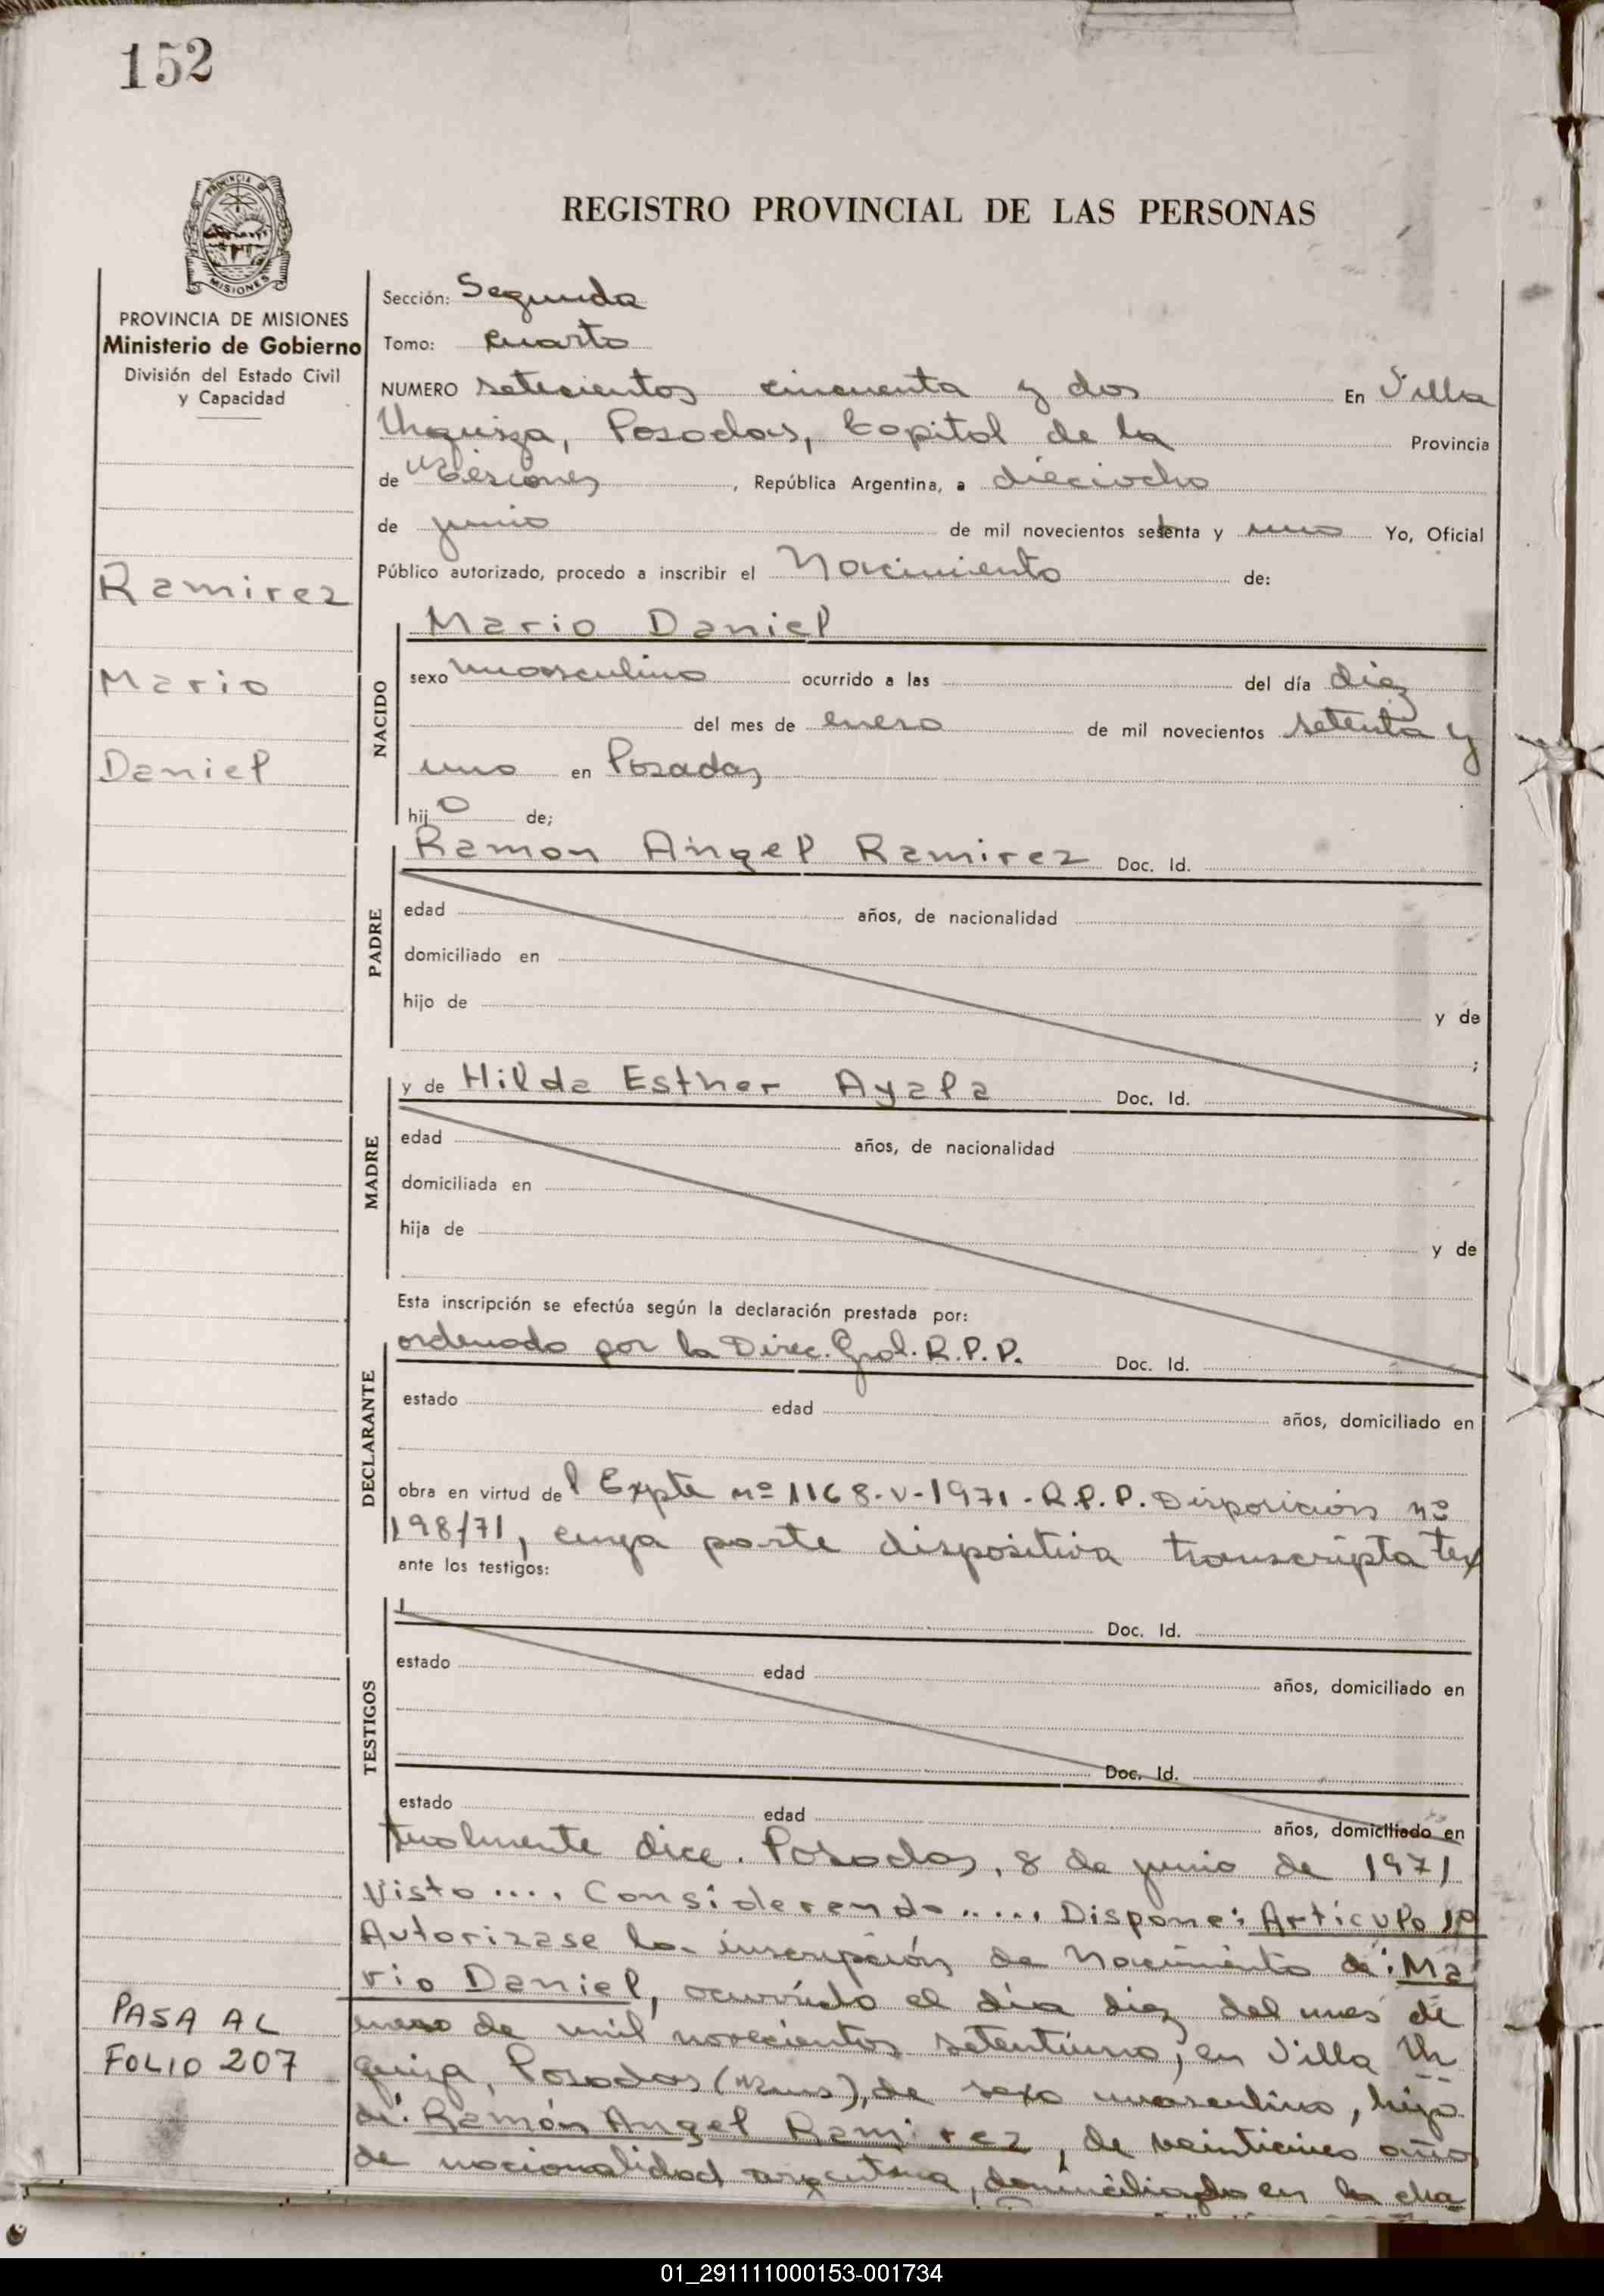 152
REGISTRO PROVINCIAL DE LAS PERSONAS
PROVINCIA DE MISIONES
MISIONES
PROVINCIA DE MISIONES
Ministerio de Gobierno
División del Estado Civil
y Capacidad
Ramirez
Mario
Daniel
PASA AL
FOLIO 207
Sección: Segunda
Tomo: cuarto
NUMERO setecientos cincuenta y dos En Villa
Urquiza, Posadas, Capital de la Provincia
de Misiones, República Argentina, a dieciocho
de junio de mil novecientos setenta y uno Yo, Oficial
Público autorizado, procedo a inscribir el Nacimiento de:
NACIDO
Mario Daniel
sexo masculino ocurrido a las del día diez
del mes de enero de mil novecientos setenta y
uno en Posadas
hijo de;
PADRE
Ramon Angel Ramirez Doc. Id.
edad años, de nacionalidad
domiciliado en
hijo de y de
;
MADRE
y de Hilda Esther Ayala Doc. Id.
edad años, de nacionalidad
domiciliada en
hija de y de
Esta inscripción se efectúa según la declaración prestada por:
DECLARANTE
ordenado por la Direc. Gral. R.P.P. Doc. Id.
estado edad años, domiciliado en
obra en virtud del Expte nº 1168-V-1971-R.P.P. Disposición nº
198/71, cuya parte dispositiva transcripta tex
ante los testigos:
TESTIGOS
Doc. Id.
estado edad años, domiciliado en
Doc. Id.
estado edad años, domiciliado en
tualmente dice. Posadas, 8 de junio de 1971
Visto .... Considerando ..... Dispone: Artículo 1º
Autorizase la inscripción de Nacimiento de: Ma
rio Daniel, ocurrido el día diez del mes de
enero de mil novecientos setentiuno, en Villa Ur
quiza, Posadas (Mnes), de sexo masculino, hijo
de: Ramón Angel Ramirez, de veinticinco año
de nacionalidad argentina, domiciliado en la cha
01_291111000153-001734